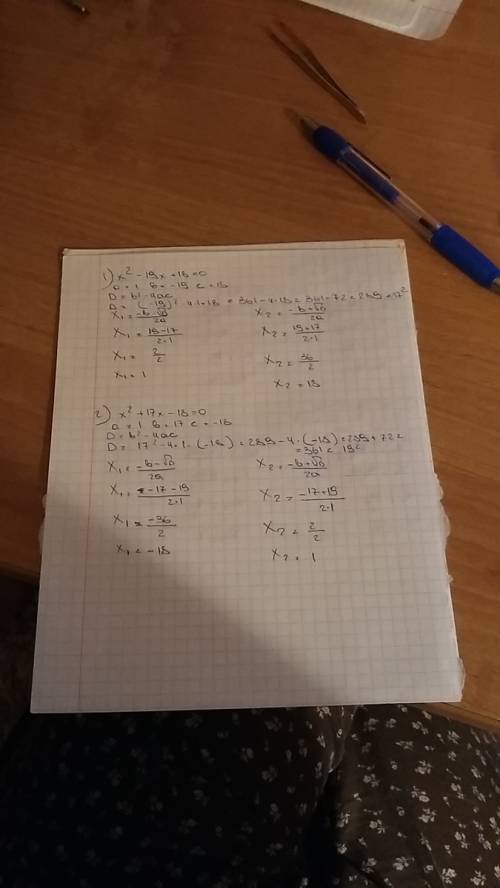 1) x² - 19x + 18 = 0
a = 1 b = -19 c = 18
D = b² - 4ac
D = (-19)² - 4·1·18 = 361 - 4·18 = 361 - 72 = 289 = 17²
x₁ = -b-√D / 2a x₂ = -b+√D / 2a
x₁ = 19-17 / 2·1 x₂ = 19+17 / 2·1
x₁ = 2/2 x₂ = 36/2
x₁ = 1 x₂ = 18
2) x² + 17x - 18 = 0
a = 1 b = 17 c = -18
D = b² - 4ac
D = 17² - 4·1·(-18) = 289 - 4·(-18) = 289 + 72 =
= 361 = 19²
x₁ = -b-√D / 2a x₂ = -b+√D / 2a
x₁ = -17-19 / 2·1 x₂ = -17+19 / 2·1
x₁ = -36/2 x₂ = 2/2
x₁ = -18 x₂ = 1